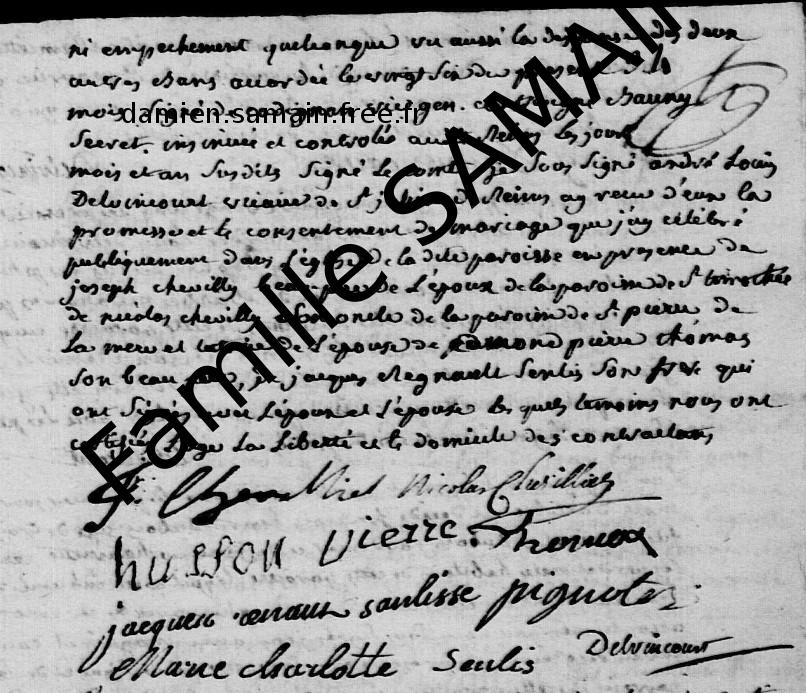 ni empechement quelconque vu aussi la des des deux
autres bans accordée le vingt six du present
mois signé de vicgen. Chauny
Secret. insinuée et controlée a Reims les jour
mois et an susdits signé Le comte je Soussigné andré Louis
Delvincourt vicaire de St j de Reims ay recu d'eux la
promesse et le consentement de mariage que j'ay célébré
publiquement dans L'église de la dite paroisse en presence de
joseph chevilly beau pere de L'époux de la paroisse de St
de nicolas chevilly son oncle de la paroisse de St pierre de
La mere et de L'épouse de pierre thomas
Son beau , de jacques Regnault Senlis Son frere qui
ont Signés avec L'époux et L'épouse les quels temoins nous ont
certifié L'age La Liberté et le domicile des contractans
Nicolas Chevillies
husson pierre Thomas
jacques saulisse pignolet
Marie charlotte Senlis Delvincourt
damien.samain.free.fr
Famille SAMAIN